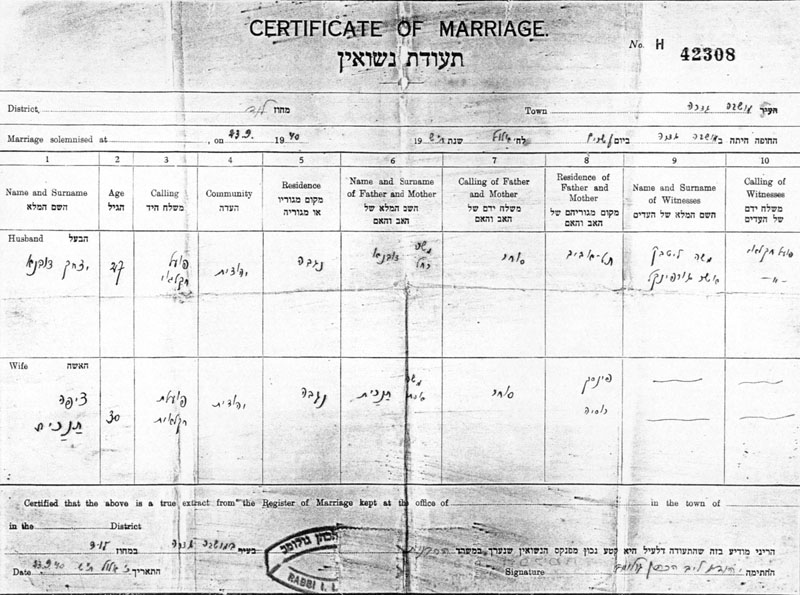 CERTIFICATE OF MARRIAGE.
תעודת נשואין
No. H 42308
District, מחוז לוד Town מושבה גדרה העיר
Marriage solemnised at , on 23.9. 1940 19 שנת ת״ש לח׳ אלול ביום החופה היתה ב מושבה גדרה
1 2 3 4 5 6 7 8 9 10
Name and Surname Age Calling Community Residence Name and Surname of Father and Mother Calling of Father and Mother Residence of Father and Mother Name and Surname of Witnesses Calling of Witnesses
השם המלא הגיל משלח היד העדה מקום מגוריו או מגוריה השם המלא של האב והאם משלח ידם של האב והאם מקום מגוריהם של האב והאם השם המלא של העדים משלח ידם של העדים
Husband הבעל
יצחק דובנא פועל חקלאי יהודית נגבה משה רחל דובנא סוחר תל-אביב משה
Wife האשה
ציפה תנכית 30 פועלת חקלאית יהודית נגבה משה תנכית סוחר פינסק רוסיה
Certified that the above is a true extract from the Register of Marriage kept at the office of in the town of
in the District
הריני מודיע בזה שהתעודה דלעיל היא קטע נכון מפנקס הנשואין שנערך במשרד
בעיר במושבה גדרה במחוז לוד
Date 23.9.40 אלול ת״ש התאריך
Signature יהודא ליב הכהן החתימה
הכהן גולומב
RABBI I. L.